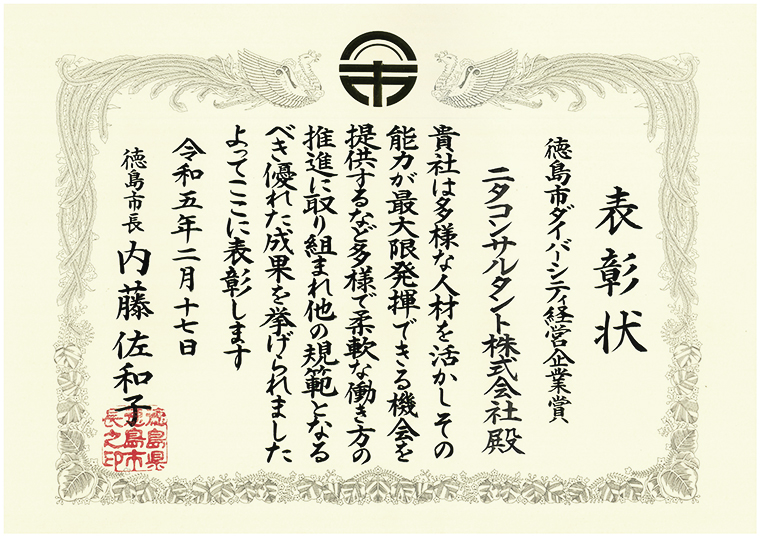 表彰状
徳島市ダイバーシティ経営企業賞
ニタコンサルタント株式会社 殿
貴社は多様な人材を活かしその
能力が最大限発揮できる機会を
提供するなど多様で柔軟な働き方の
推進に取り組まれ他の規範となる
べき優れた成果を挙げられました
よってここに表彰します
令和五年二月十七日
徳島市長 内藤佐和子
徳島県
徳島市
長之印